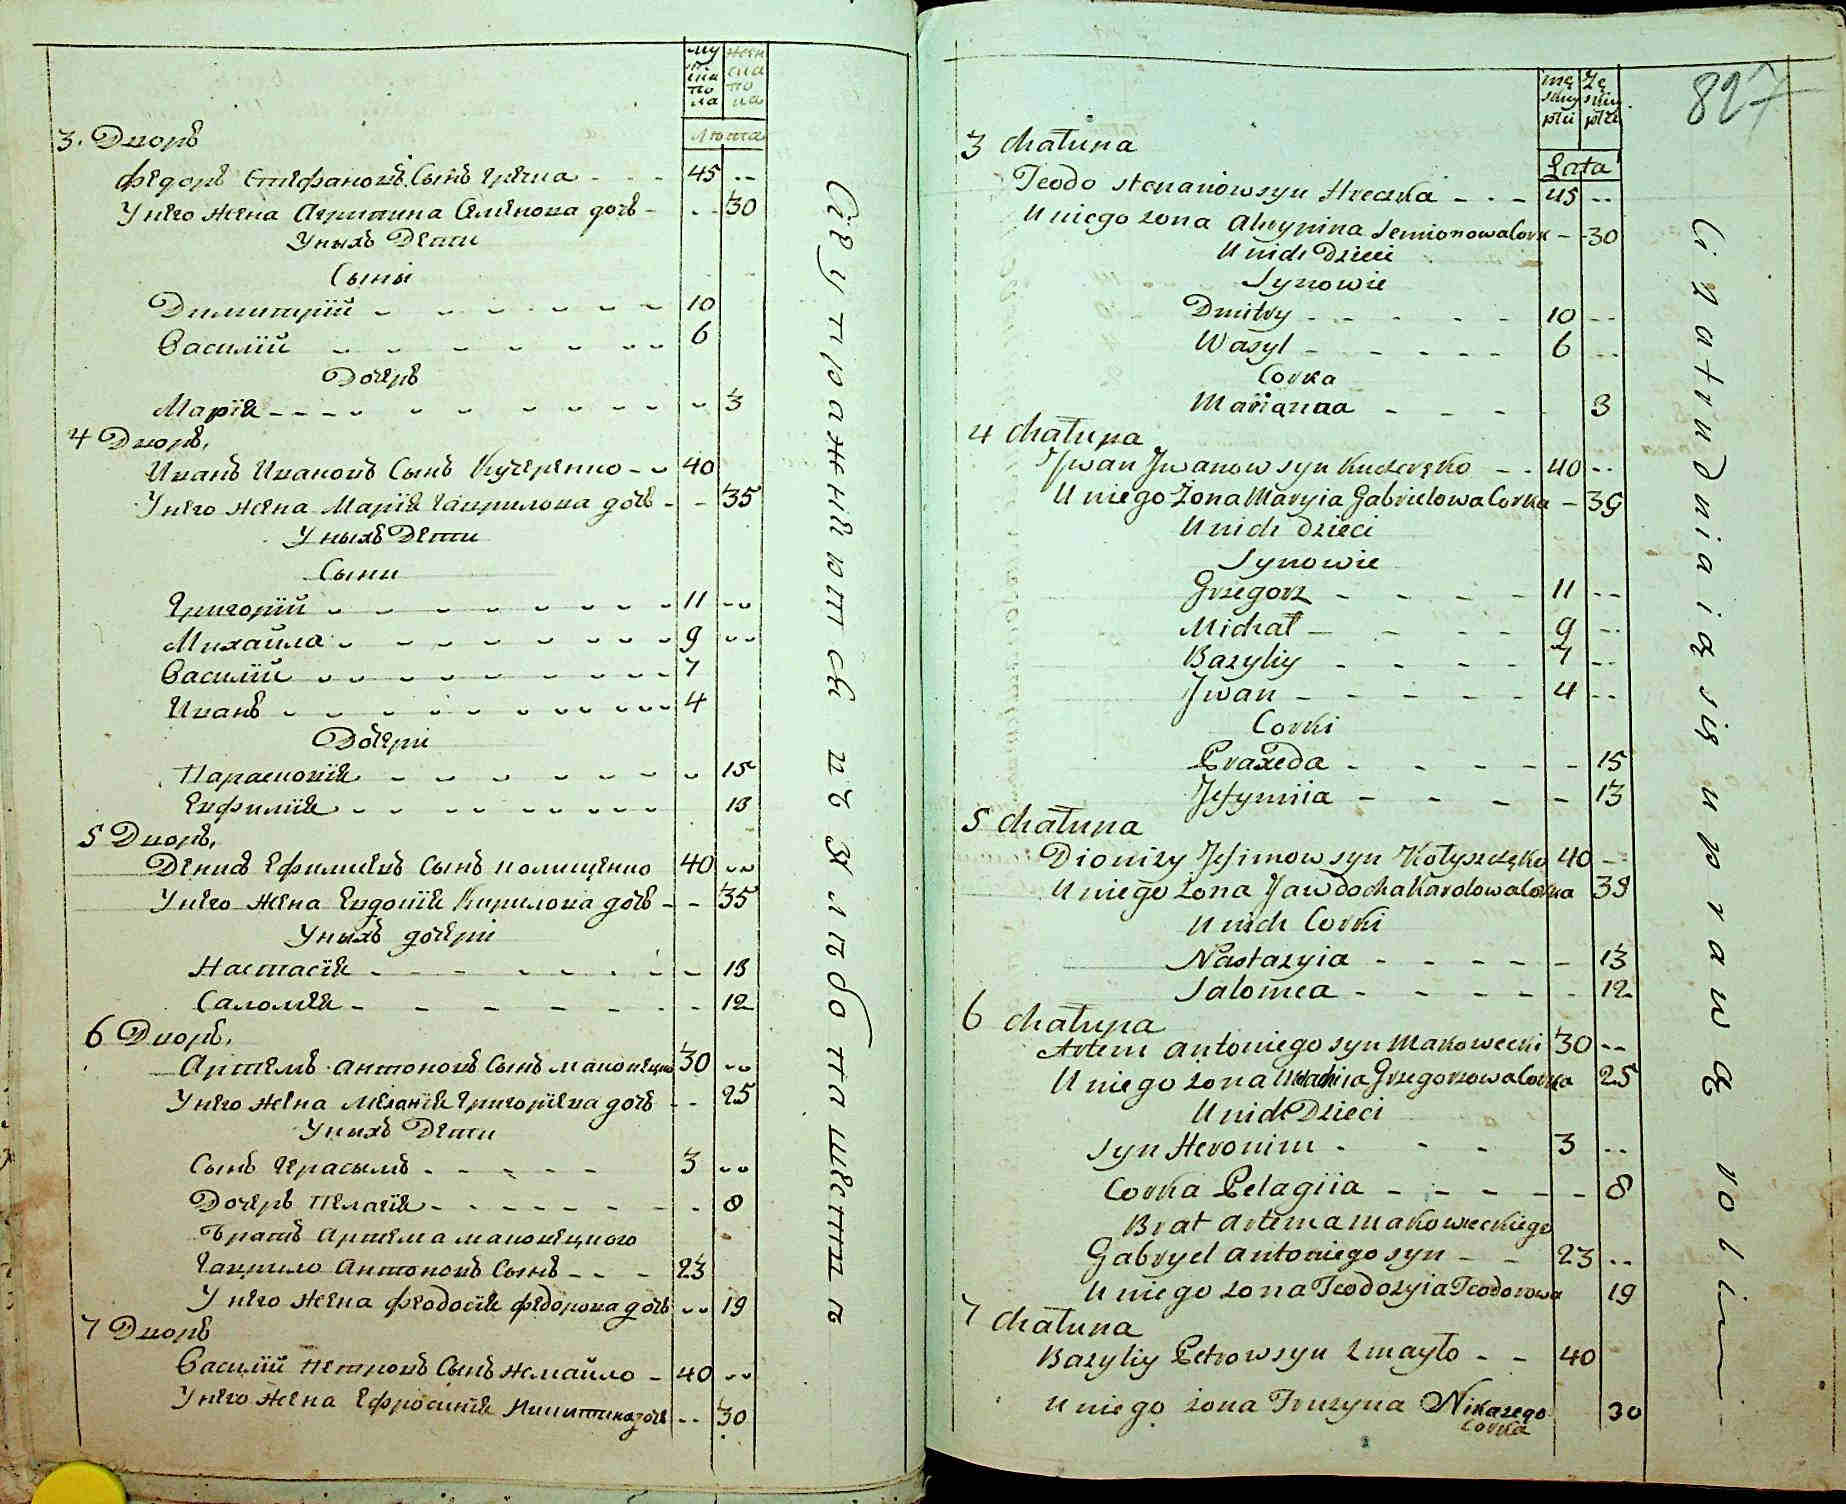 мужеска пола
женска пола
Лета
3. Дворъ
Федоръ Стефановъ Сынъ Гречка - - - 45 --
У него жена Агрипина Семенова дочь - - - 30
У ныхъ Дети
Сыни
Димитрїй - - - - - - - 10
Василїй - - - - - - - 6
Дочерь
Марїя - - - - - - - - 3
4 Дворъ,
Иванъ Ивановъ Сынъ Кучеренко - - 40
У него жена Марїя Гаврилова дочь - - 35
У ныхъ Дети
Сыни
Григорїй - - - - - - - - 11 --
Михайла - - - - - - - - 9 --
Василїй - - - - - - - - 7
Иванъ - - - - - - - - 4
Дочери
Параскевїя - - - - - - - 15
Евфимїя - - - - - - - 13
5 Дворъ,
Денисъ Ефимиевъ Сынъ колищенко 40 --
У него жена Евдокїя Кирилова дочь - - 35
У ныхъ дочери
Настасїя - - - - - - - - 13
Саломея - - - - - - - - 12
6 Дворъ,
Артемъ Антоновъ Сынъ маковецкий 30 --
У него жена Меланїя Григорїева дочь - - 25
У ныхъ Дети
Сынъ Герасымъ - - - - - 3 --
Дочерь Пелагїя - - - - - - - - 8
Братъ Артема маковецкого
Гаврило Антоновъ Сынъ - - - 23
У него жена Феодосїя Федорова дочь -- 19
7 Дворъ
Василїй Петровъ Сынъ жмайло - 40 --
У него жена Ефросинїя Никитина дочь -- 30
Сїе упражнюются въ хлебопашестве
827
męskiey płci
żęńskiey płci
Lata
3 chałupa
Teodo stepanow syn Hreczka - - - 45 --
U niego zona Ahrypina Semionowa Cork - - 30
U nich Dzieci
Synowie
Dmitry - - - - - - 10 --
Wasyl - - - - - - 6 --
Corka
Marianna - - - - 3
4 chałupa
Jwan Jwanow syn Kuczeręko - - 40 --
U niego żona Maryia Gabrielowa Corka - 35
U nich Dzieci
Synowie
Grzegorz - - - - - 11 --
Michał - - - - - 9 --
Bazyliy - - - - - 7 --
Jwan - - - - - 4 --
Corki
Praxeda - - - - - - 15
Jefymiia - - - - - 13
5 chałupa
Dionizy Jefimow syn Kołyszczęko 40 --
U niego żona Jawdocha Karolowa Corka 35
U nich Corki
Nastazyia - - - - - - 13
Salomea - - - - - - 12
6 chałupa
Artem antoniego syn Makowecki 30 --
U niego zona Małachiia Grzegorzowa Corka 25
U nich Dzieci
Syn Heronim - - - 3 --
Corka Pelagiia - - - - - - 8
Brat artema makowieckiego
Gabryel antoniego syn - - 23 --
U niego zona Teodozyia Teodorowa 19
7 chałupa
Bazyliy Petrow syn Zmayło - - 40
U niego zona Fruzyna Nikazego
Corka 30
Ci zatrudniaią się uprawą roli